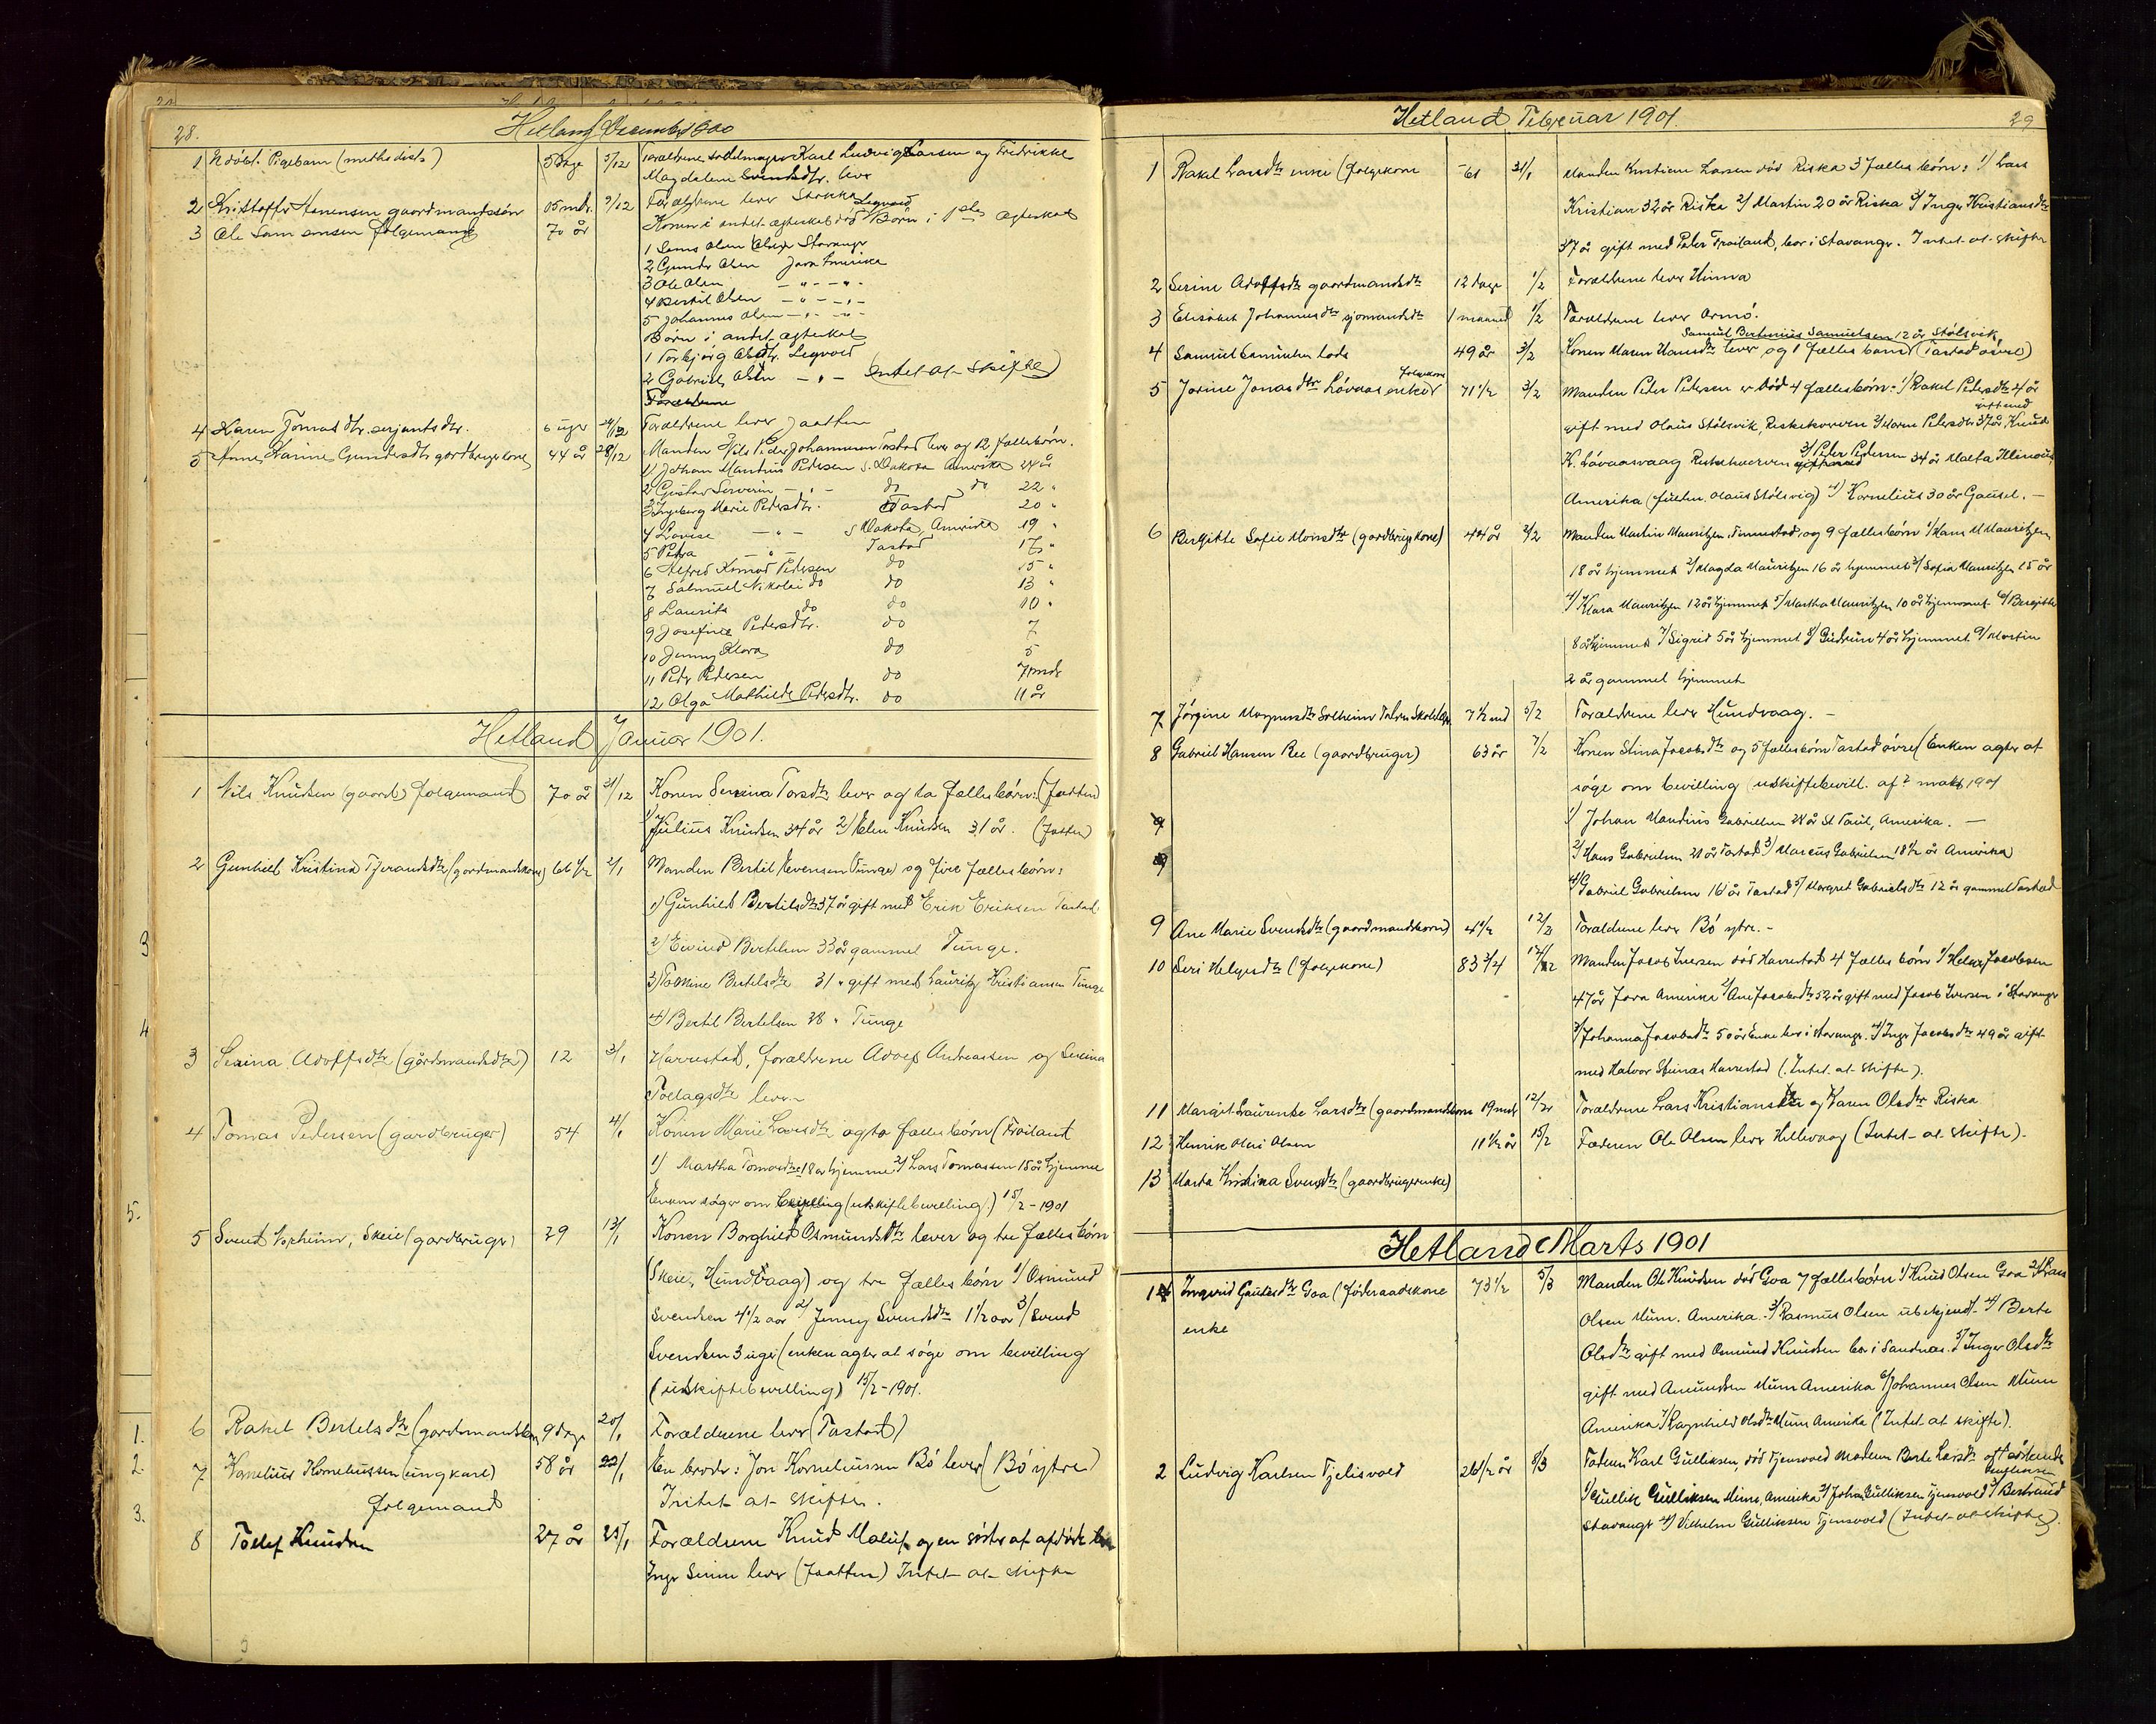 28.
Hetland December 1900
1 Udöbt Pigebarn (methodist) 5 Dage 5/12 Forældrene Karl Ludvig Larsen og Fredrikke
Magdalene Svendsdtr. lever
2 Kristoffer Asmensen gaardmandssön 05 mdr. 9/12 Forældrene lever Stokka
3 Ole Samuensen folgemand 70 år Konen i andet ægteskab död Legvold Börn i 1ste ægteskab
1 Soms Olsen Stavanger
2 Gunder Olsen Jova Amerika
3 Ole Olsen — " — " —
4 Bertil Olsen — " — " —
5 Johannes Olsen — " — " —
Börn i andet ægteskab
1 Torbjörg Olsdtr. Legvold
2 Gabriel Olsen — " — (Intet at skifte)
Forældrene
4 Karen Jonasdtr. serjantsdtr. 6 uger 24/12 Forældrene lever Jaatten
5 Anne Karine Gundersdtr gordbrugerkone 44 år 28/12 Manden Nils Peder Johannesen Tastad lever og 12 fællesbörn.
1) Johan Mandius Pedersen S. Dakota Amerika 24 år
2 Gustav Severin — " — do do 22 "
3 Ingeborg Marie Pedersdtr. Tastad 20 "
4 Lovise — " — S Dakota, Amerika 19 "
5 Petra — " — Tastad 17 "
6 Alfred Konrad Pedersen do 15 "
7 Salmuel Nikolai do do 13 "
8 Laurits do do 10 "
9 Josefine Pedersdtr. do 7
10 Jenny Klara do 5
11 Peder Pedersen do 7 mdr
12 Olga Mathilde Pedersdtr. do 11 år
Hetland Januar 1901.
1 Nils Knudsen (gaard) folgemand 70 år 31/12 Konen Serina Torsdtr lever og to fællesbörn: (Jatten)
1) Julius Knudsen 34 år 2) Elen Knudsen 31 år. (Jatten)
2 Gunhild Kristina Tjerandsdtr (gordmandskone) 66 1/2 2/1 Manden Bertil Evensen Tunge og fire fællesbörn:
1) Gunhild Bertilsdtr 37 år gift med Erik Eriksen Tastad
2) Eivind Bertelsen 33 år gammel Tunge.
3) Torkine Bertelsdtr 31 " gift med Lauritz Kristiansen Tunge
4) Bertel Bertelsen 28 " Tunge
3 Serina Adolfsdtr (gårdmandsdtr) 12 3/1 Harrestad, forældrene Adolf Andreassen og Serina
Tollagsdtr lever
4 Tomas Pedersen (gardbruger) 54 4/1 Konen Marie Larsdtr og to fællesbörn (Froiland
1) Martha Tomasdtr 18 år hjemme 2) Lars Tomassen 15 år hjemme
Enken söger om bevilling (uskiftebevilling) 15/2 - 1901
5 Svend Vorheim, Skeie (gordbruger) 29 13/1 Konen Borghild Osmundsdtr lever og tre fællesbörn
(Skeie, Hundvaag) og tre fællesbörn 1) Osmund
Svendsen 4 1/2 aar 2) Jenny Svendsdtr 1 1/2 aar 3) Svend
Svendsen 3 uger (enken agter at söge om bevilling
(uskiftebevilling) 15/2 - 1901.
6 Rakel Bertelsdtr (gordmandsbarn 9 dage 20/1 Forældrene lever (Tastad)
7 Kornelius Korneliussen (ungkarl) 58 år 22/1 En broder: Jon Korneliussen Bö lever (Bö ytre)
folgemand Intet at skifte.
8 Tollef Knudsen 27 år 25/1 Forældrene Knud Maluf og en söster af afdöde
Inger Serine lever (Jaatten) Intet at skifte
3
4
5.
1.
2
3.
29
Hetland Februar 1901.
1 Rakel Larsdtr enke (folgekone 61 31/1 Manden Kristian Larsen död Riska 3 fælles börn: 1) Lars
Kristian 32 år Riska 2) Martin 20 år Riska 3) Inger Kristiansdtr
37 år gift med Peder Froiland, bor i Stavanger. Intet at skifte
2 Serine Adolfsdtr gaordmandsdtr 12 dage 1/2 Forældrene lever Hinna
3 Elisabet Johannesdtr sjomandsdtr 1 maaned 1/2 Forældrene lever Ormö.
Samuel Bertinius Samuelsen 12 år Stölsvik
4 Samuel Samuelsen Lods 49 år 3/2 Konen Maren Hansdtr lever og 1 fælles barn (Tastad övre)
5 Jorine Jonasdtr Lövaas enke folgekone 71 1/2 3/2 Manden Peder Petersen er död 4 fællesbörn: 1) Rakel Petersdtr 41 år
gift med Olaus Stölsvik, Riskekverven 2) Maren Petersdtr 37 år gift med Knud
K. Lövaasvaag Riskekverven 3) Peter Pedersen 34 år Malta Illinois
Amerika (fuldm. Olaus Stölsvig) 4) Kornelius 30 år Gausel. —
6 Bergitte Sofie Monsdtr (gordbrugskone) 44 år 2/2 Manden Martin Mauritzen Finnestad og 9 fællesbörn 1) Hans M Mauritzen
18 år hjemmet 2) Magda Mauritzen 16 år hjemmet 3) Sofia Mauritzen 15 år
4) Klara Mauritzen 12 år hjemmet 5) Martha Mauritzen 10 år hjemmet 6) Bergitte
8 år hjemmet 7) Sigrid 5 år hjemmet 8) Gudrun 4 år hjemmet 9) Martin
2 år gammel hjemmet
7 Jörgine Magnusdtr Solheim 7 1/2 md 5/2 Forældrene lever Hundvaag. —
8 Gabriel Hansen Ree (gaordbruger) 63 år 7/2 Konen Stina Jacobsdtr og 5 fællesbörn Tastad övre (Enken agter at
söge om bevilling uskiftebevill. af 2 marts 1901
1) Johan Mandius Gabrielsen 24 år St Paul, Amerika. —
2) Hans Gabrielsen 21 år Tastad 3) Marcus Gabrielsen 18 1/2 år Amerika
4) Gabriel Gabrielsen 16 år Tastad 5) Margret Gabrielsdtr 12 år gammel Tastad
9 Ane Marie Svendsdtr (gaordmandsbarn) 4 1/2 12/2 Forældrene lever Bö ytre. -
10 Seri Helgesdtr (folgekone) 83 3/4 12/2 Manden Jacob Iversen död Harrestad 4 fælles börn 1) Helge Jacobsen
47 år Jova Amerika 2) Ane Jacobsdtr 52 år gift med Jacob Iversen i Stavanger
3) Johanna Jacobsdtr 50 år Enke bor i Stavanger. 4) Inger Jacobsdtr 49 år gift
med Halvor Steinas Harrestad (Intet at skifte).
11 Margit Laurentse Larsdtr (gaordmandsbarn 19 mdr 12/2 Forældrene Lars Kristiansen og Karen Olsdtr Riska
12 Henrik Olai Olsen 11 1/2 år 15/2 Faderen Ole Olsen lever Hillevaag (Intet at skifte).
13 Marta Kristina Svensdtr (gaordbrugerenke)
Hetland Marts 1901
1 Ingerid Gautesdtr Goa (föderaadskone 73 1/2 5/3 Manden Ole Knudsen död Goa 7 fællesbörn 1) Knud Olsen Goa 2) Lars
enke Olsen Minn. Amerika. 3) Rasmus Olsen ubekjendt 4) Berte
Olsdtr gift med Osmund Knudsen bor i Sandnæs. 5) Inger Olsdtr
gift med Amundsen Minn Amerika 6) Johannes Olsen Minn
Amerika 7) Ragnhild Olsdtr Minn Amerika (Intet at skifte).
2 Ludvig Karlsen Tjelisvold 26 1/2 år 8/3 Faderen Karl Gulliksen, död Tjensvold Moderen Berte Larsdtr
1) Gullik Gulliksen Minn, Amerika 2) Johan Gulliksen Tjensvold 3) Bertrand Gulliksen
Stavanger 4) Vilhelm Gulliksen Tjensvold (Intet at skifte).